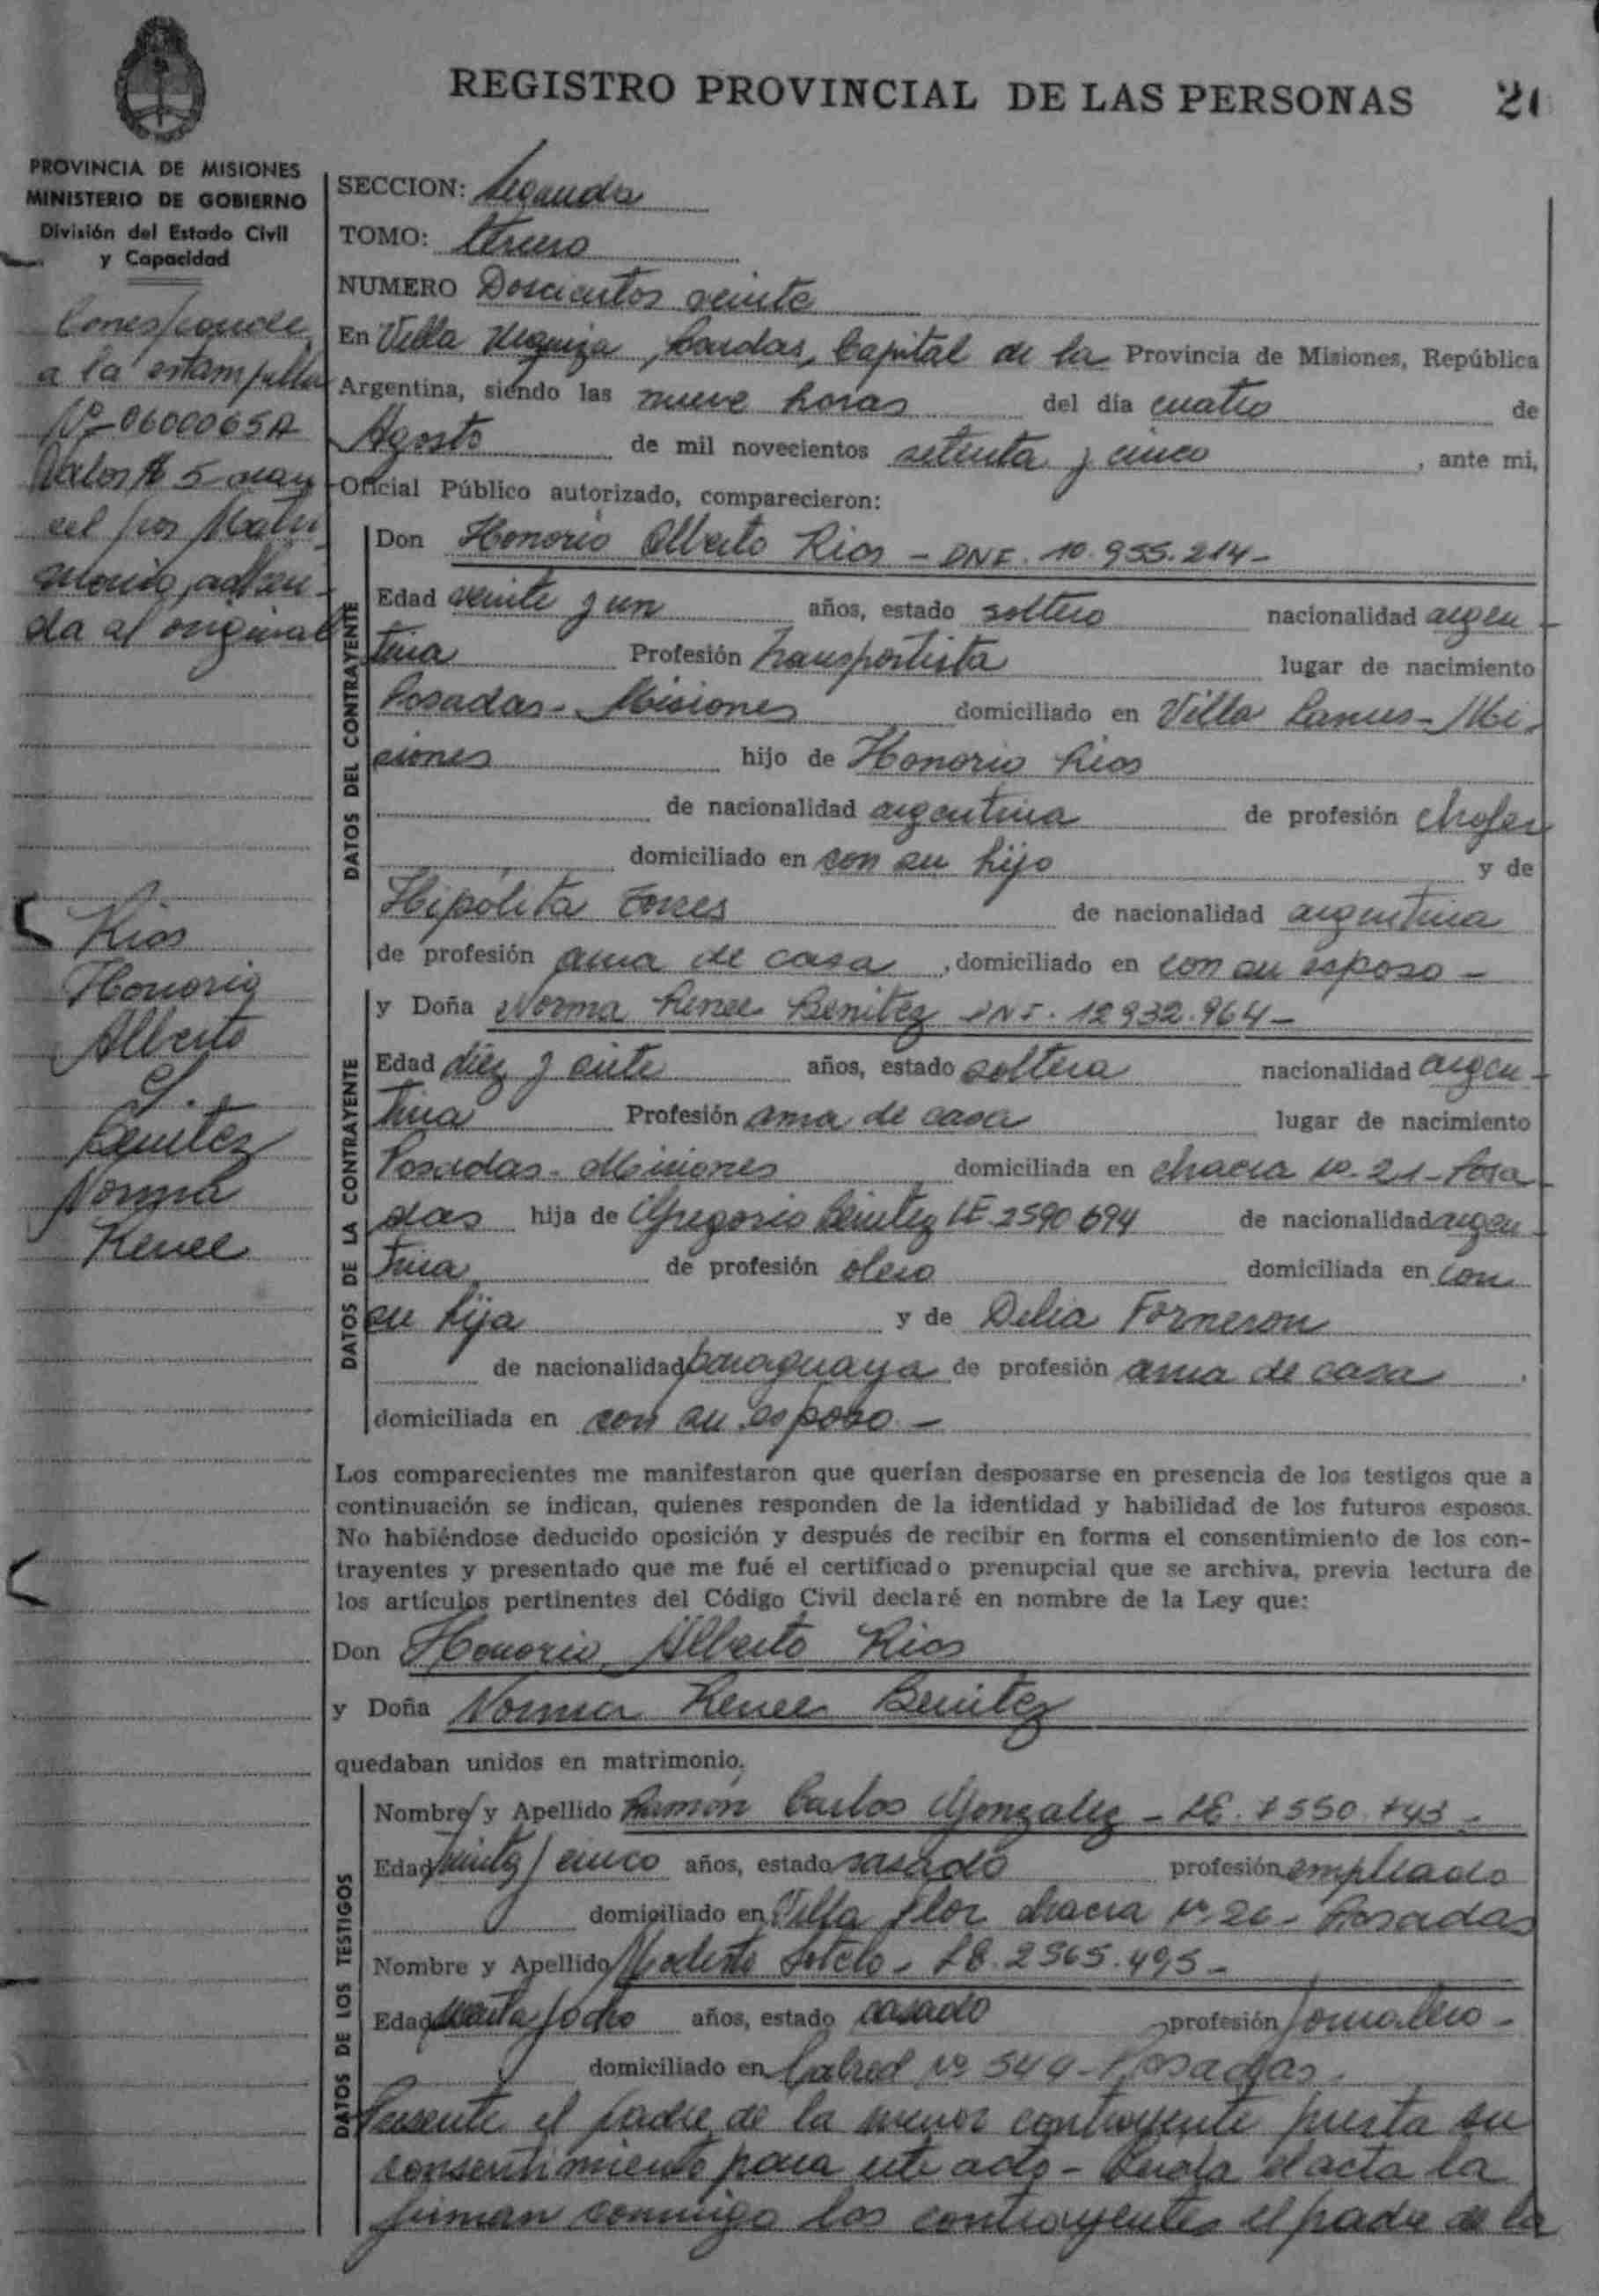 REGISTRO PROVINCIAL DE LAS PERSONAS
PROVINCIA DE MISIONES
MINISTERIO DE GOBIERNO
División del Estado Civil
y Capacidad
Corresponde
a la estampilla
Nº 0600065A
Valor $ 5
por Matri-
monio, adheri-
da al original
Rios
Honorio
Alberto
y
Benitez
Norma
Renee
SECCION: Segunda
TOMO: tercero
NUMERO Doscientos veinte
En Villa Urquiza, Posadas, Capital de la Provincia de Misiones, República
Argentina, siendo las nueve horas del día cuatro de
Agosto de mil novecientos setenta y cinco, ante mi,
Oficial Público autorizado, comparecieron:
DATOS DEL CONTRAYENTE
Don Honorio Alberto Rios - DNI. 10.955.214-
Edad veinte y un años, estado soltero nacionalidad argen-
tina Profesión transportista lugar de nacimiento
Posadas - Misiones domiciliado en Villa Lanus - Mi-
siones hijo de Honorio Rios
de nacionalidad argentina de profesión chofer
domiciliado en con su hijo y de
Hipólita Torres de nacionalidad argentina
de profesión ama de casa, domiciliado en con su esposo -
DATOS DE LA CONTRAYENTE
y Doña Norma Renee Benitez DNI. 12.932.964-
Edad diez y siete años, estado soltera nacionalidad argen-
tina Profesión ama de casa lugar de nacimiento
Posadas - Misiones domiciliada en chacra Nº 21 - Posa-
das hija de Gregorio Benitez LE 2590694 de nacionalidad argen-
tina de profesión olero domiciliada en con
su hija y de Delia Forneron
de nacionalidad paraguaya de profesión ama de casa,
domiciliada en con su esposo. -
Los comparecientes me manifestaron que querían desposarse en presencia de los testigos que a
continuación se indican, quienes responden de la identidad y habilidad de los futuros esposos.
No habiéndose deducido oposición y después de recibir en forma el consentimiento de los con-
trayentes y presentado que me fué el certificado prenupcial que se archiva, previa lectura de
los artículos pertinentes del Código Civil declaré en nombre de la Ley que:
Don Honorio Alberto Rios
y Doña Norma Renee Benitez
quedaban unidos en matrimonio.
DATOS DE LOS TESTIGOS
Nombre y Apellido Ramón Carlos Gonzalez - LE. 7550.743-
Edad treinta y cinco años, estado casado profesión empleado
domiciliado en Villa Flor chacra Nº 26 - Posadas
Nombre y Apellido Modesto Sotelo - LE. 2565.495-
Edad y ocho años, estado casado profesión Jornalero -
domiciliado en Nº 549 - Posadas.
Presente el padre de la menor contrayente presta su
consentimiento para este acto - Leida el acta la
firman conmigo los contrayentes el padre de la